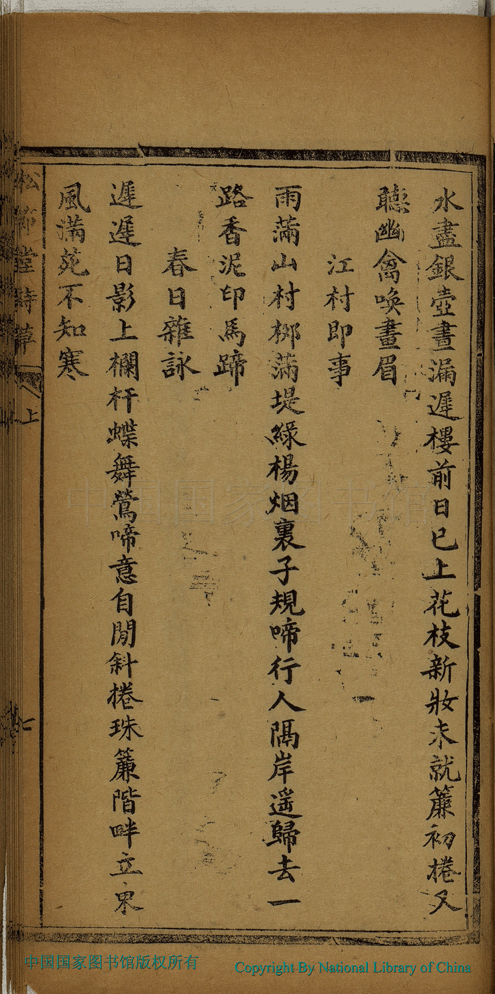 水盡銀壺晝漏遲樓前日已上花枝新妝未就簾初捲又
聽幽禽喚畫眉
江村即事
雨滿山村柳滿堤綠楊烟裏子規啼行人隔岸遥歸去一
路香泥印馬蹄
春日雜詠
遲遲日影上欄杆蝶舞鶯啼意自閒斜捲珠簾階畔立東
風滿苑不知寒
堂詩草
上
七
中国国家图书馆
中国国家图书馆版权所有
Copyright By National Library of China